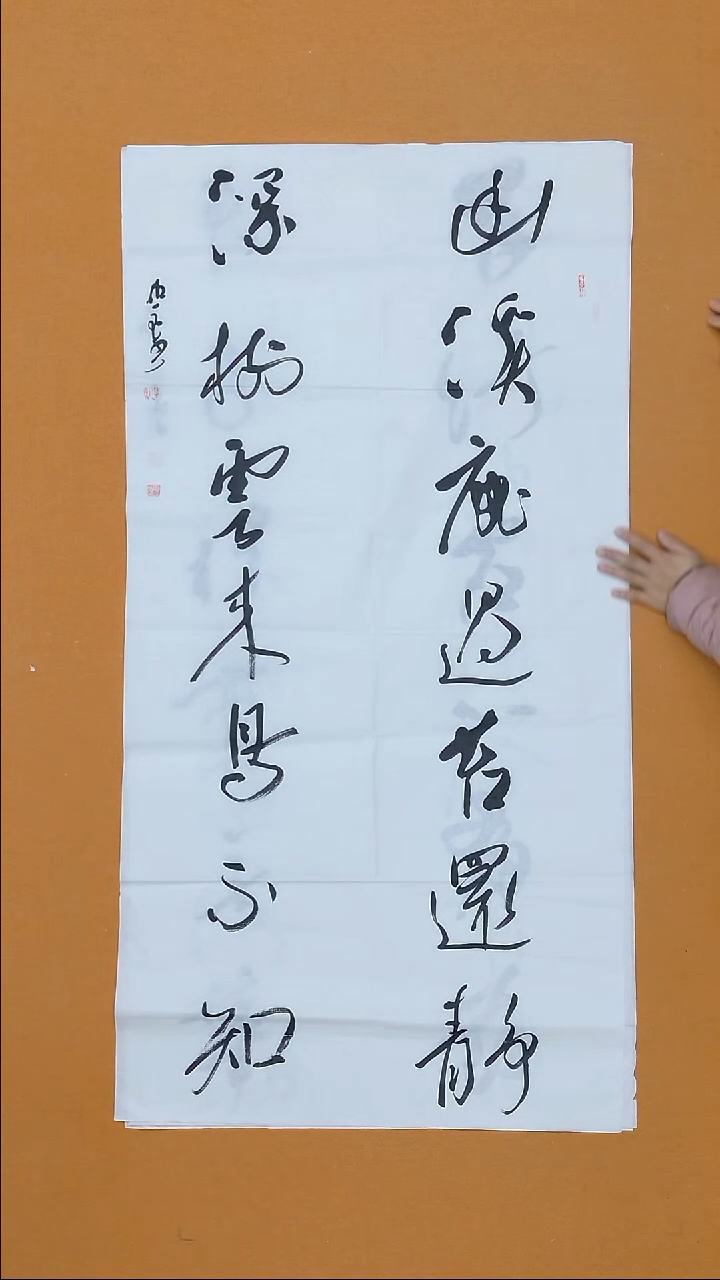 幽溪鹿過苔還靜
深樹雲來鳥不知